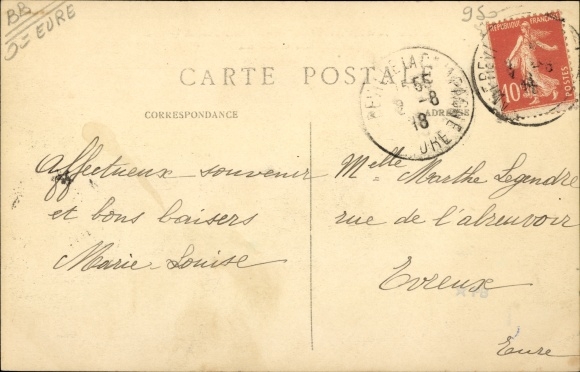 BB
O= EURE
95
CARTE POSTALE
CORRESPONDANCE
ADRESSE
REPUBLIQUE FRANÇAISE
10
POSTES
8
18
EURE
Affectueux souvenir
et bons baisers
Marie-Louise
Melle Marthe Legendre
rue de l'abreuvoir
Evreux
Eure